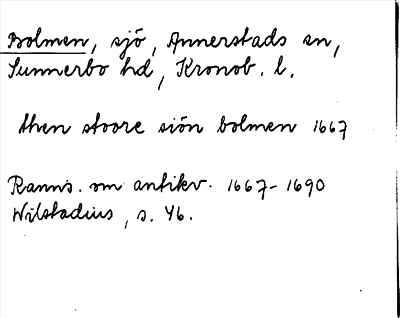 Bolmen, sjö, Annerstads sn,
Sunnerbo hd, Kronob. l.
then stoore siön bolmen 1667
Ranns. om antikv. 1667-1690
Wilstadius, s. 46.